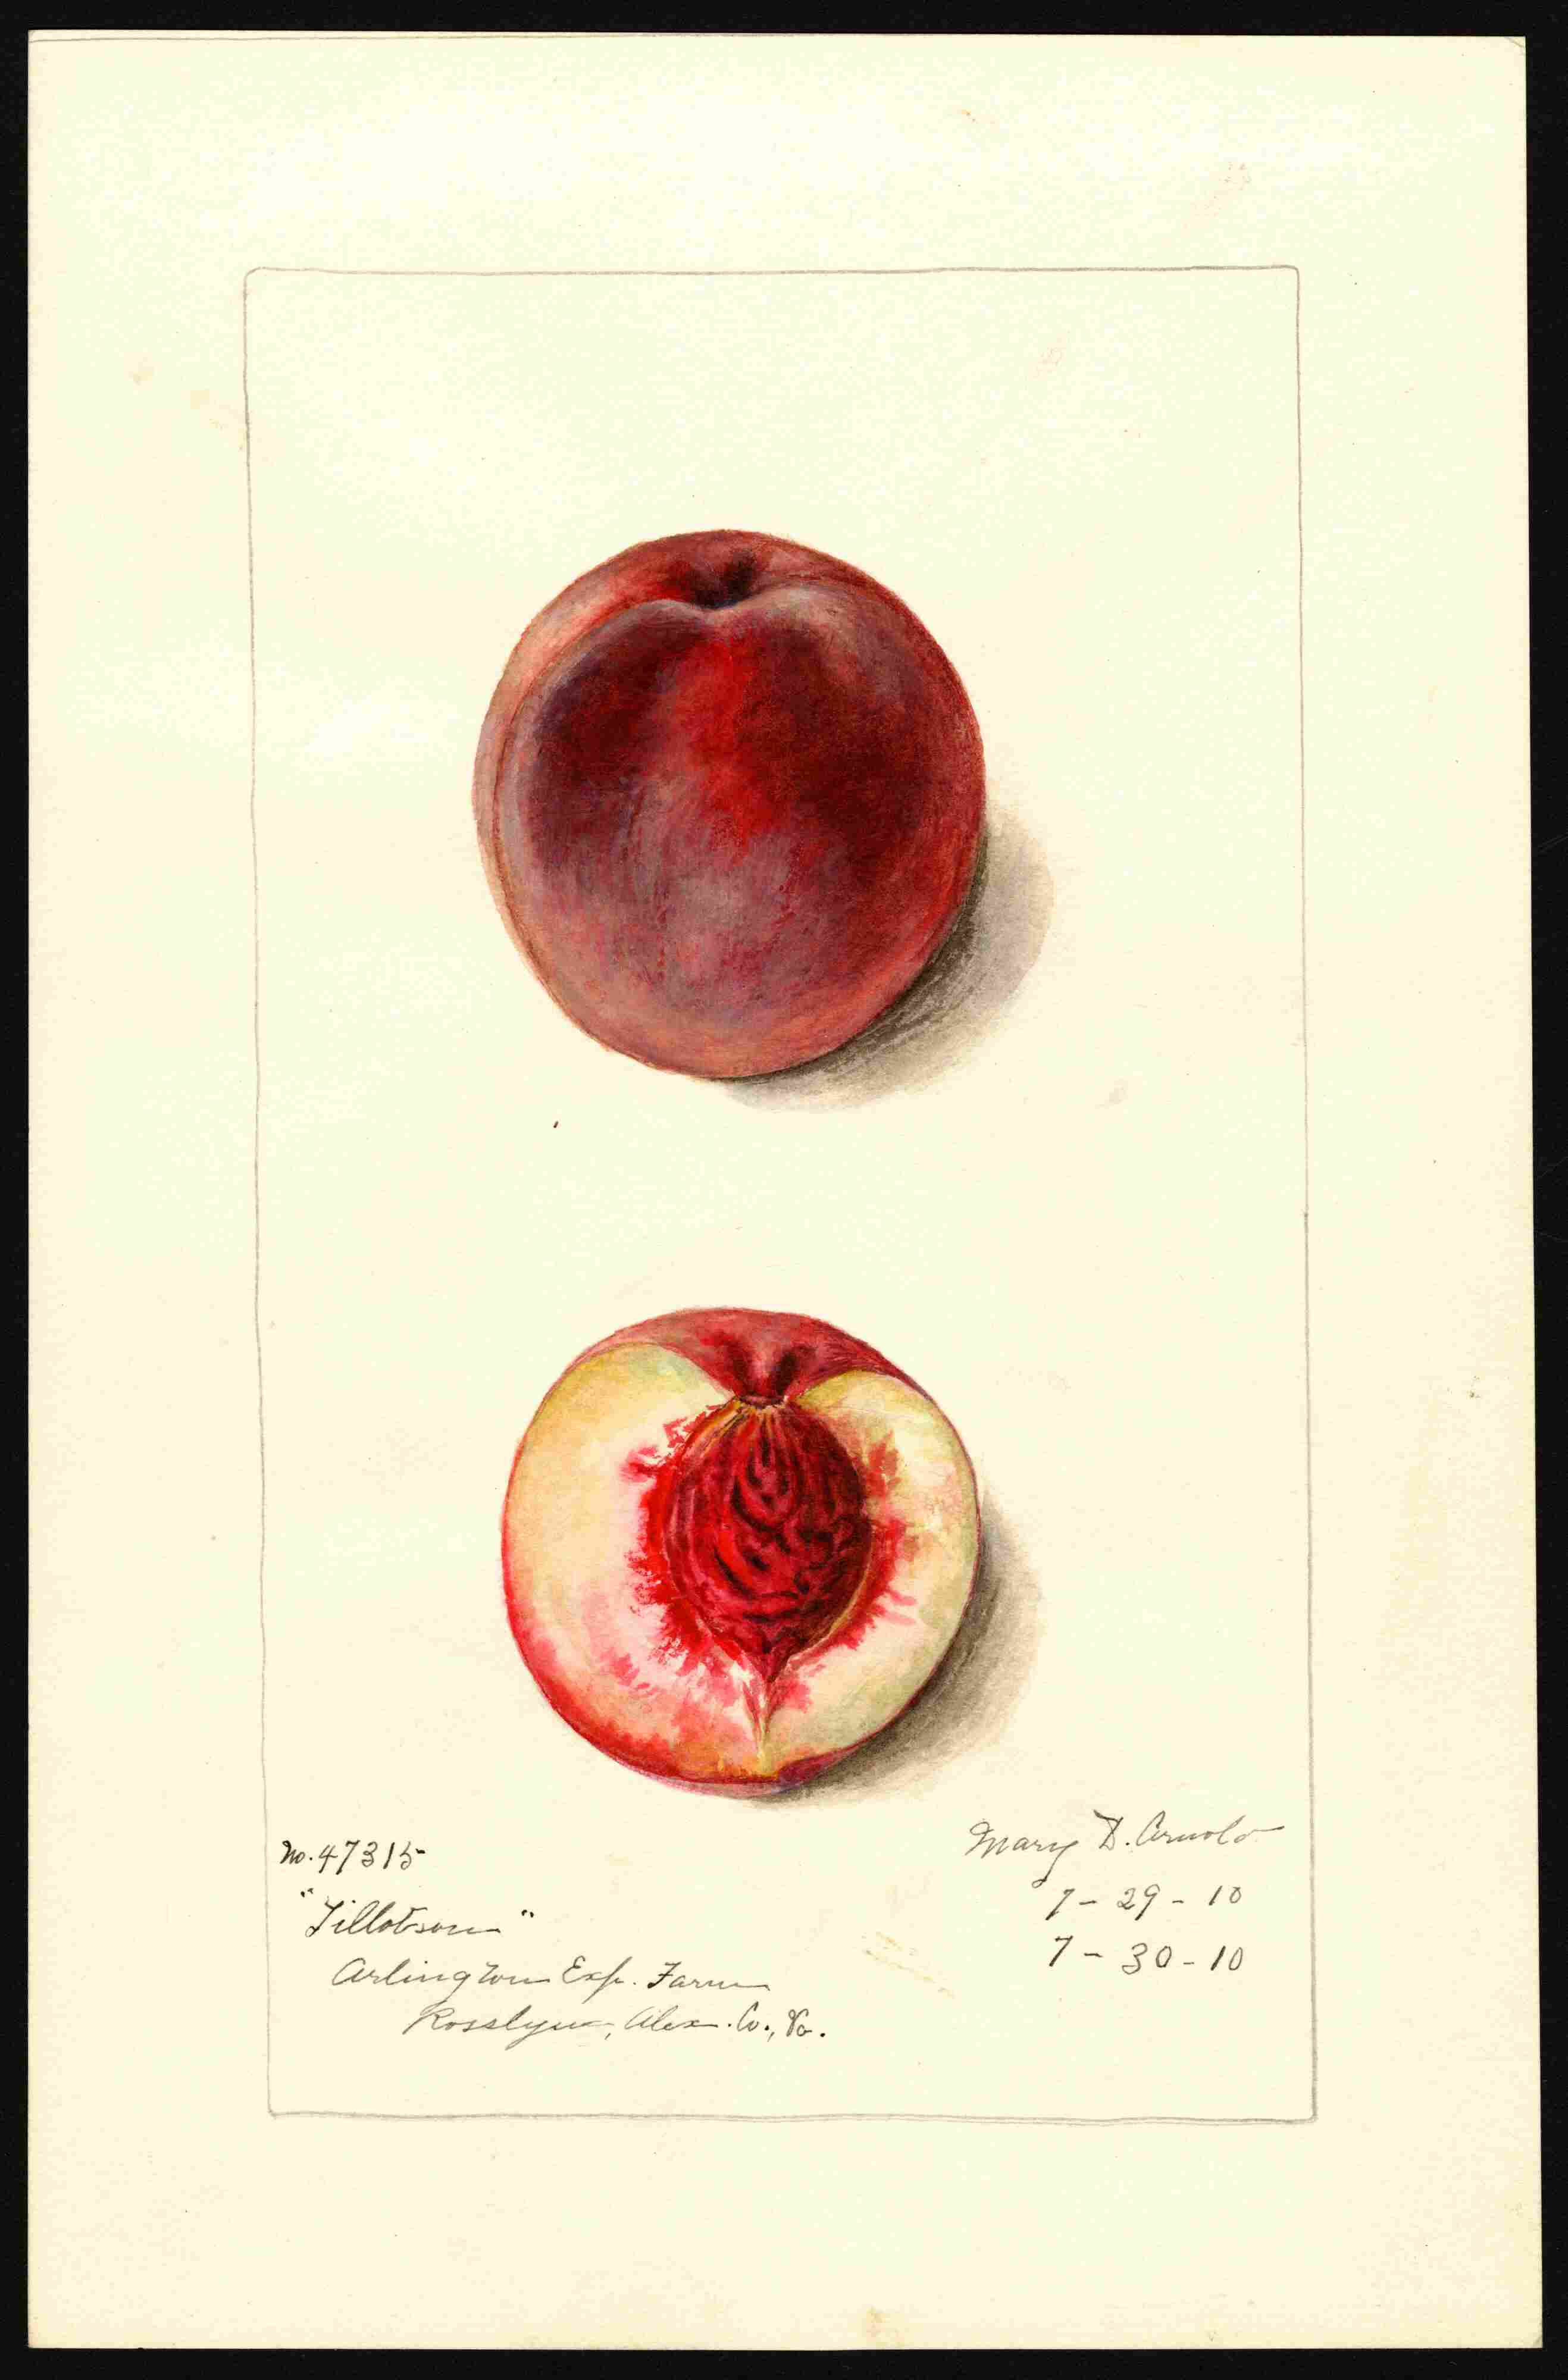 No. 47315
"Tillotson"
Arlington Exp. Farm
Rosslyn, Alex. Co., Va.
Mary D. Arnold
7 - 29 - 10
7 - 30 - 10